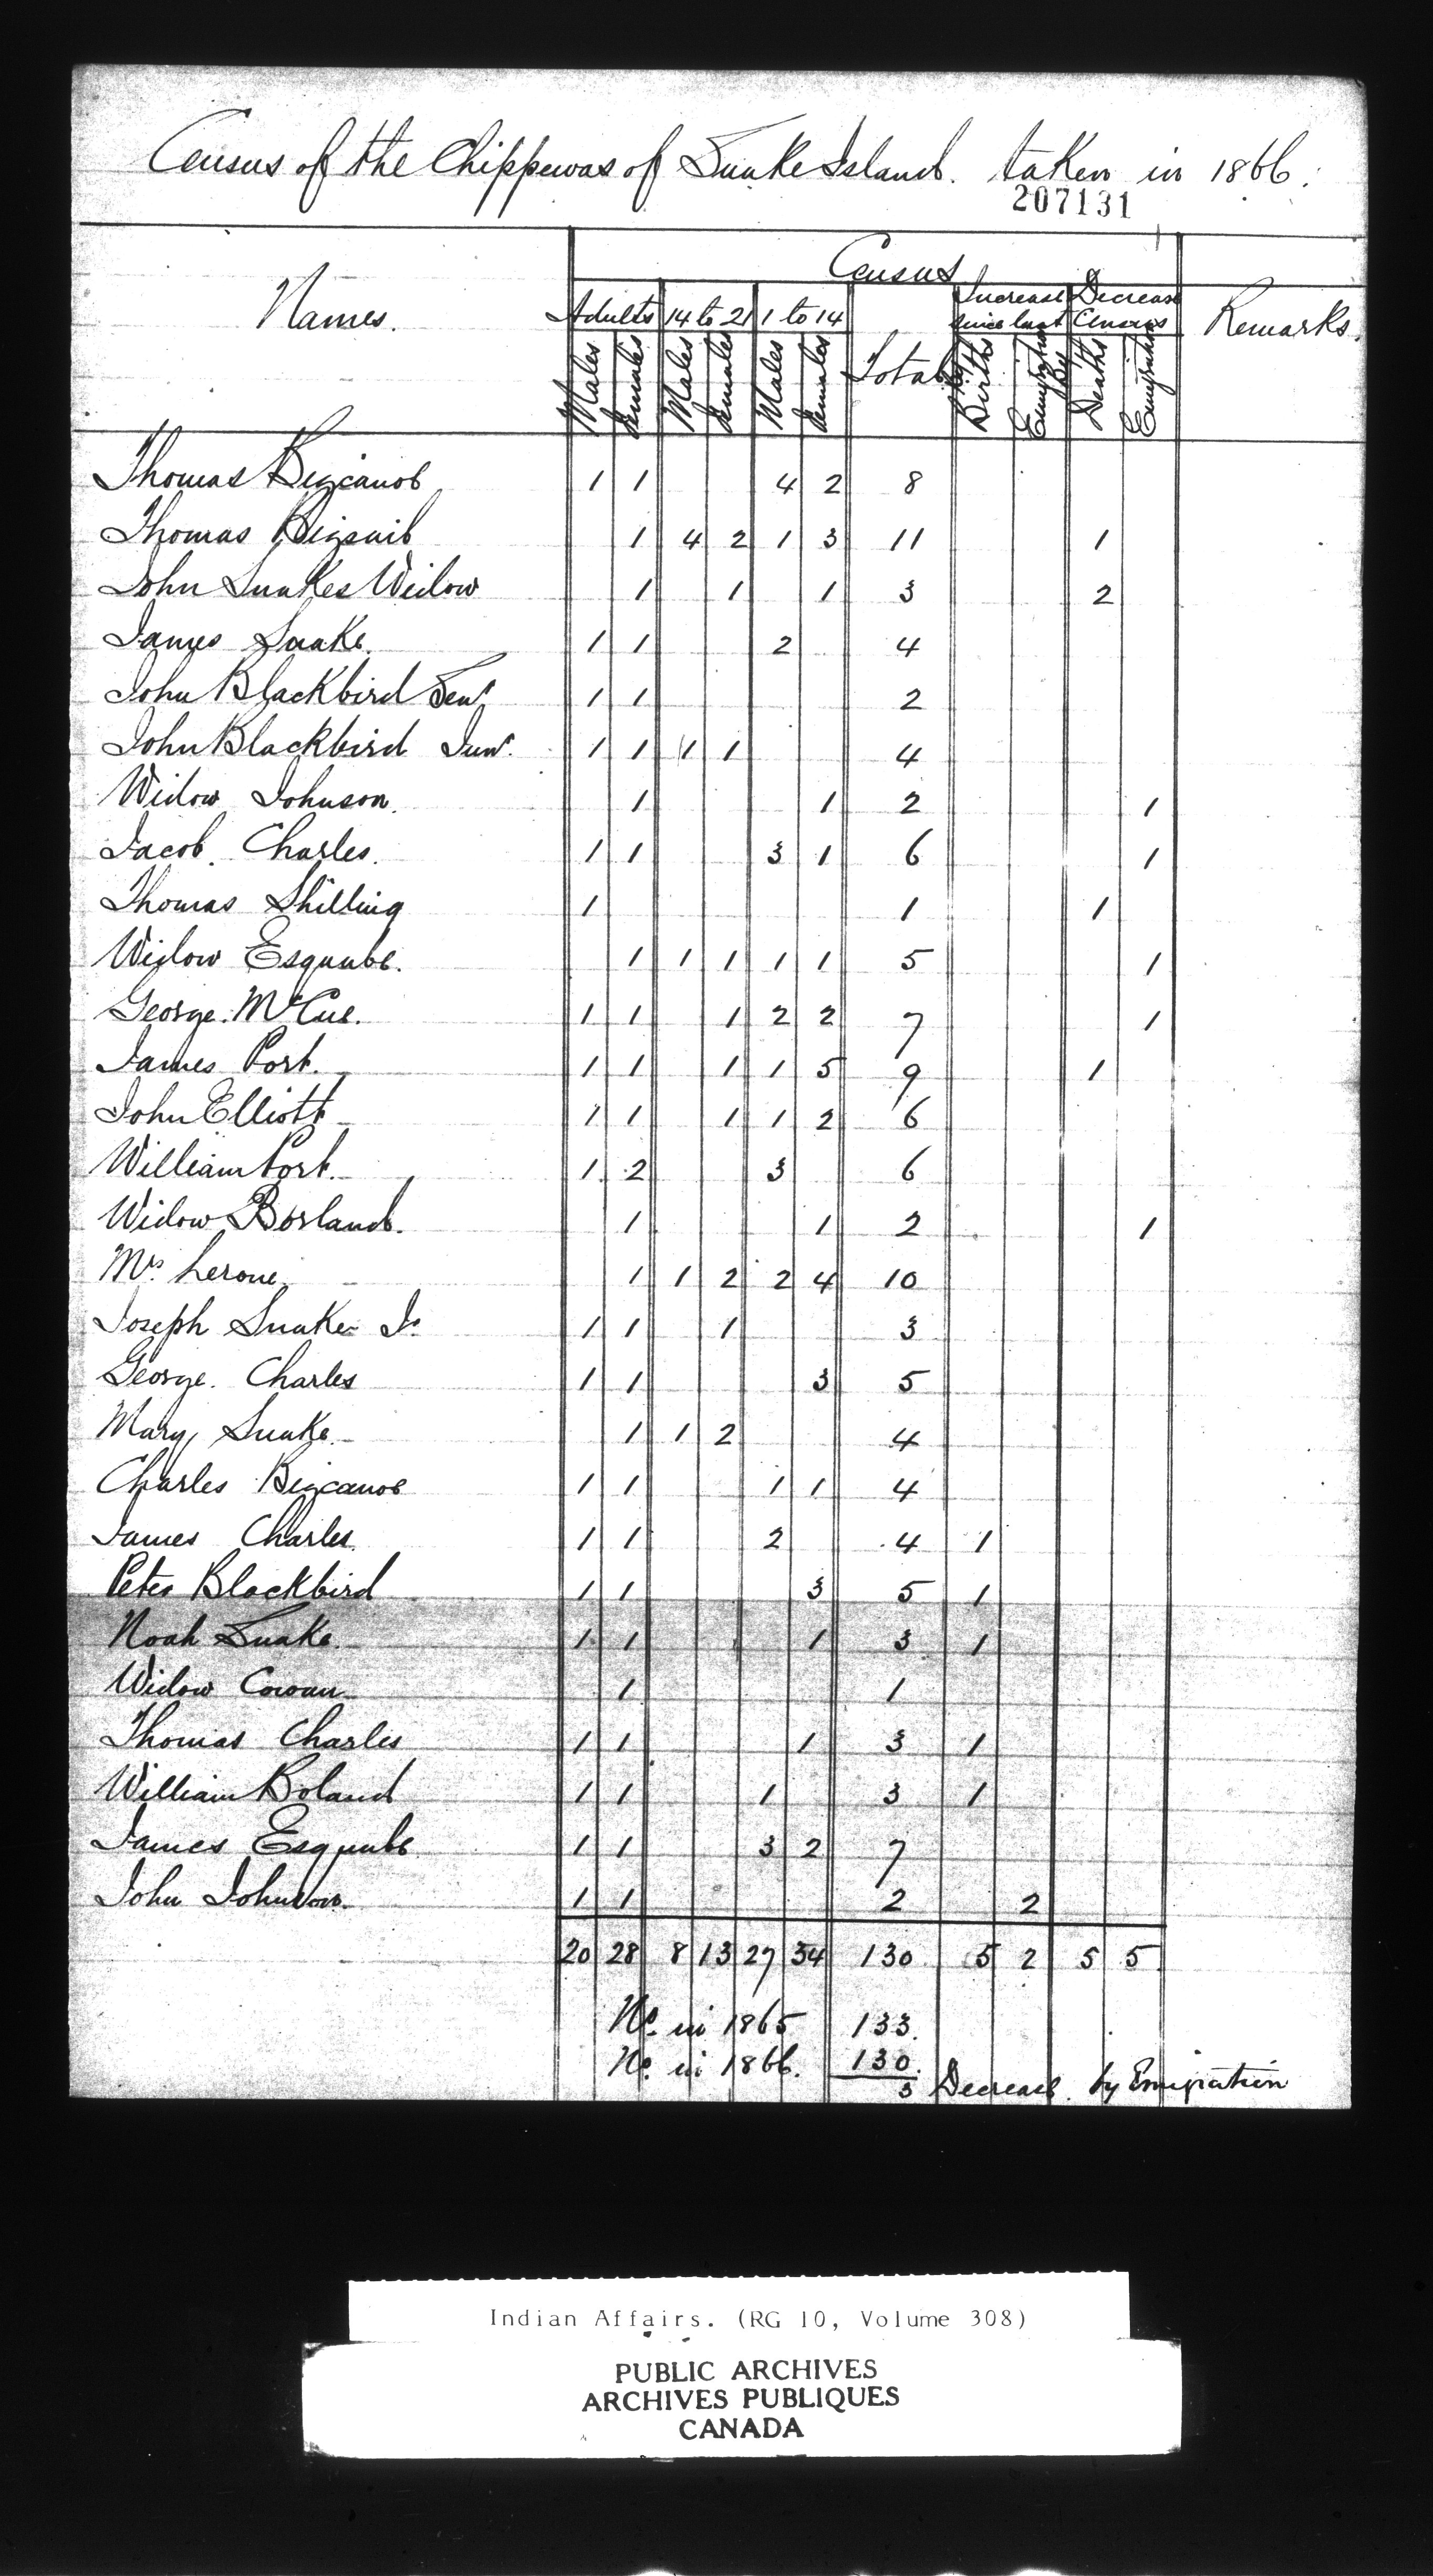 Census of the Chippewas of Snake Island. taken in 1866.
207131
Names. Census Remarks.
Adults 14 to 21 1 to 14 Total Increase since last Decrease Census
Males Females Males Females Males Females By Births By Emigration Deaths Emigration
Thomas Bigcanoe 1 1 4 2 8
Thomas Bigsail 1 4 2 1 3 11 1
John Snakes Widow 1 1 1 3 2
James Snake. 1 1 2 4
John Blackbird Senr 1 1 2
John Blackbird Junr. 1 1 1 1 4
Widow Johnson. 1 1 2 1
Jacob. Charles. 1 1 3 1 6 1
Thomas Shilling 1 1 1
Widow Esquabe. 1 1 1 1 1 5 1
George. McCue. 1 1 1 2 2 7 1
James Port. 1 1 1 1 5 9 1
John Elliott 1 1 1 1 2 6
William Port. 1 2 3 6
Widow Borland. 1 1 2 1
Mrs. Lerone. 1 1 2 2 4 10
Joseph Snake Jr. 1 1 1 3
George. Charles 1 1 3 5
Mary Snake. 1 1 2 4
Charles Bigcanoe 1 1 1 1 4
James Charles. 1 1 2 4 1
Peter Blackbird 1 1 3 5 1
Noah Snake. 1 1 1 3 1
Widow Cowan 1 1
Thomas Charles 1 1 1 3 1
William Boland 1 1 1 3 1
James Esquabe 1 1 3 2 7
John Johnson. 1 1 2 2
20 28 8 13 27 34 130 5 2 5 5
No. in 1865 133.
No. in 1866. 130.
3 Decrease by Emigration
Indian Affairs. (RG 10, Volume 308)
PUBLIC ARCHIVES
ARCHIVES PUBLIQUES
CANADA